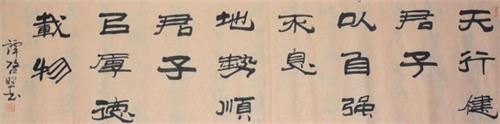 天行健
君子
以自强
不息
地勢順
君子
㠯厚德
載物